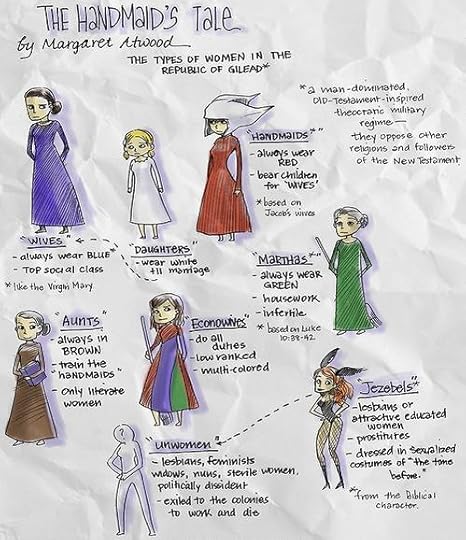 THE HANDMAID'S TALE
by Margaret Atwood
THE TYPES OF WOMEN IN THE
REPUBLIC OF GILEAD*
* a man-dominated,
OLD-Testament-inspired
theocratic military
regime—
they oppose other
religions and followers
of the New Testament
"HANDMAIDS*"
- always wear
RED
- bear children
for "WIVES"
* based on
Jacob's wives
"WIVES"
- always wear BLUE*
- TOP social class
* like the Virgin Mary
"DAUGHTERS"
- wear white
till marriage
"MARTHAS*"
- always wear
GREEN
- housework
- infertile
* based on Luke
10:38-42
"AUNTS"
- always in
BROWN
- train the
"HANDMAIDS"
- only literate
women
"ECONOWIVES"
- do all
duties
- low ranked
- multi-colored
"Jezebels*"
- lesbians or
attractive educated
women
- prostitutes
- dressed in sexualized
costumes of "the time
before."
* from the Biblical
character.
"unwomen"
- lesbians, feminists
widows, nuns, sterile women,
politically dissident
- exiled to the colonies
to work and die